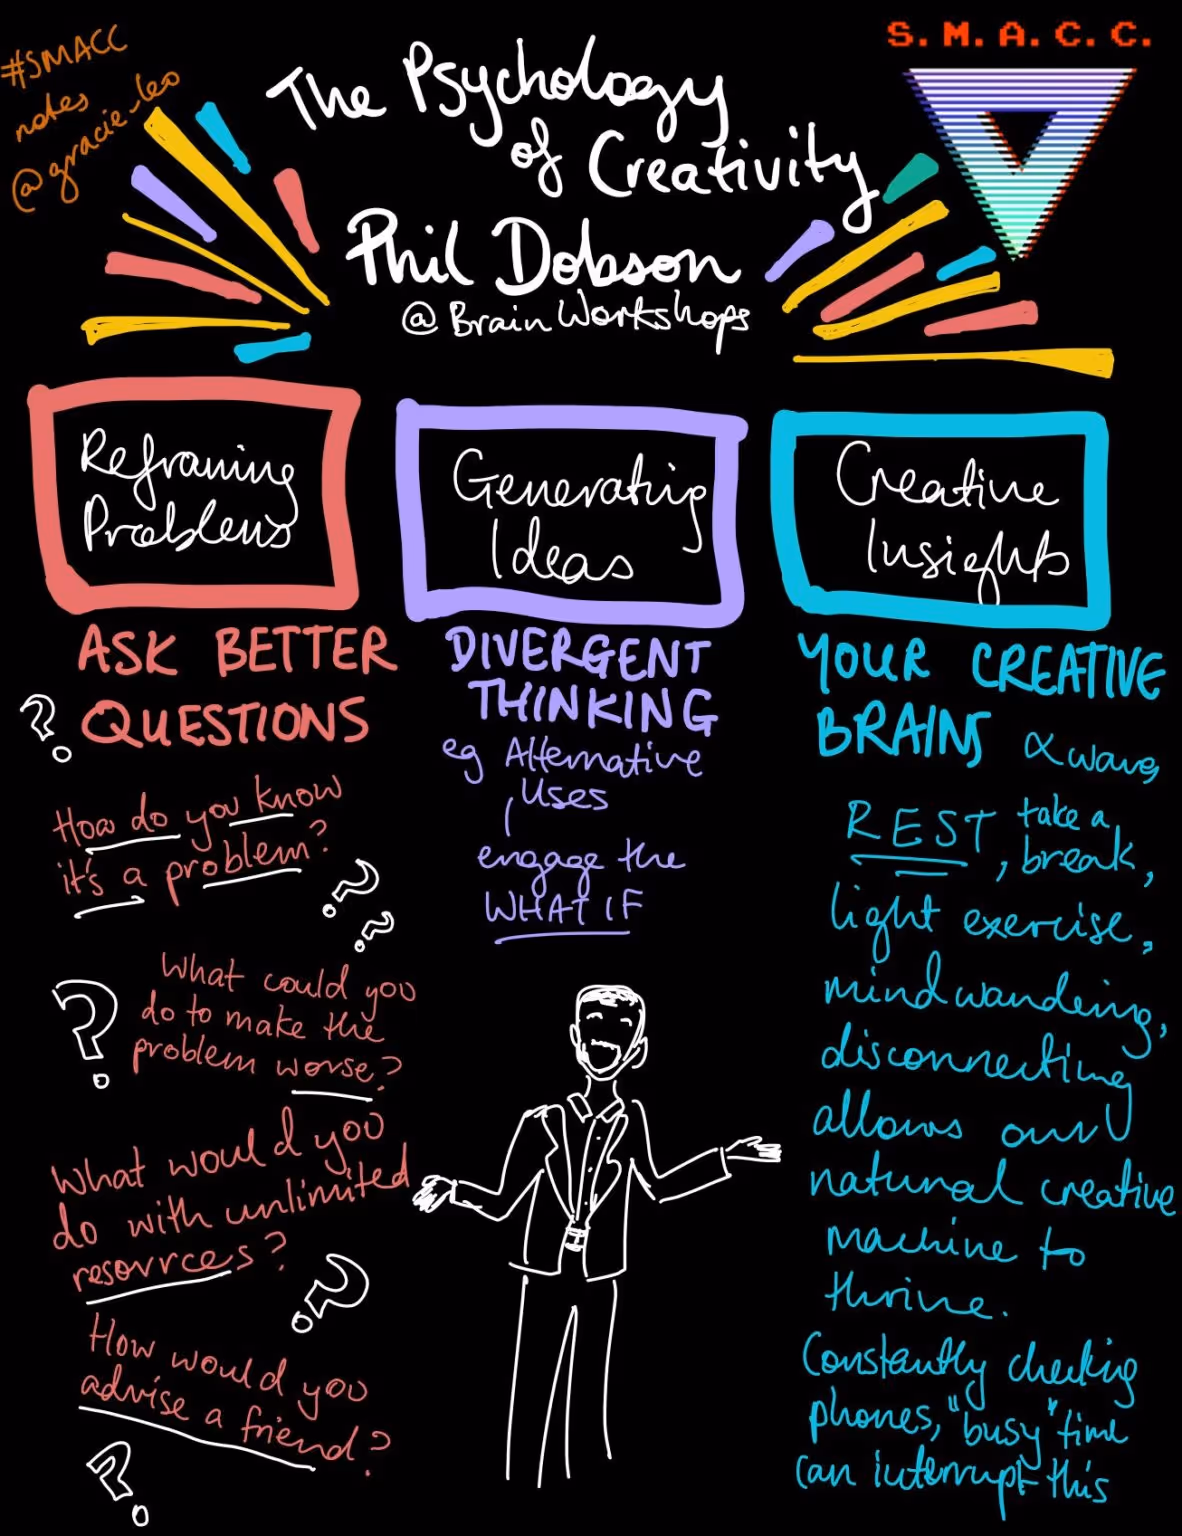 #SMACC
notes
@gracie_leo
S. M. A. C. C.
The Psychology
of Creativity
Phil Dobson
@BrainWorkshops
Reframing
Problems
ASK BETTER
QUESTIONS
?
How do you know
it's a problem?
?
?
?
What could you
do to make the
problem worse?
What would you
do with unlimited
resources?
?
How would you
advise a friend?
?
Generating
Ideas
DIVERGENT
THINKING
eg Alternative
Uses
engage the
WHAT IF
Creative
Insights
YOUR CREATIVE
BRAINS α waves
REST, take a
break,
light exercise,
mind wandering,
disconnecting
allows our
natural creative
machine to
thrive.
Constantly checking
phones, "busy" time
can interrupt this